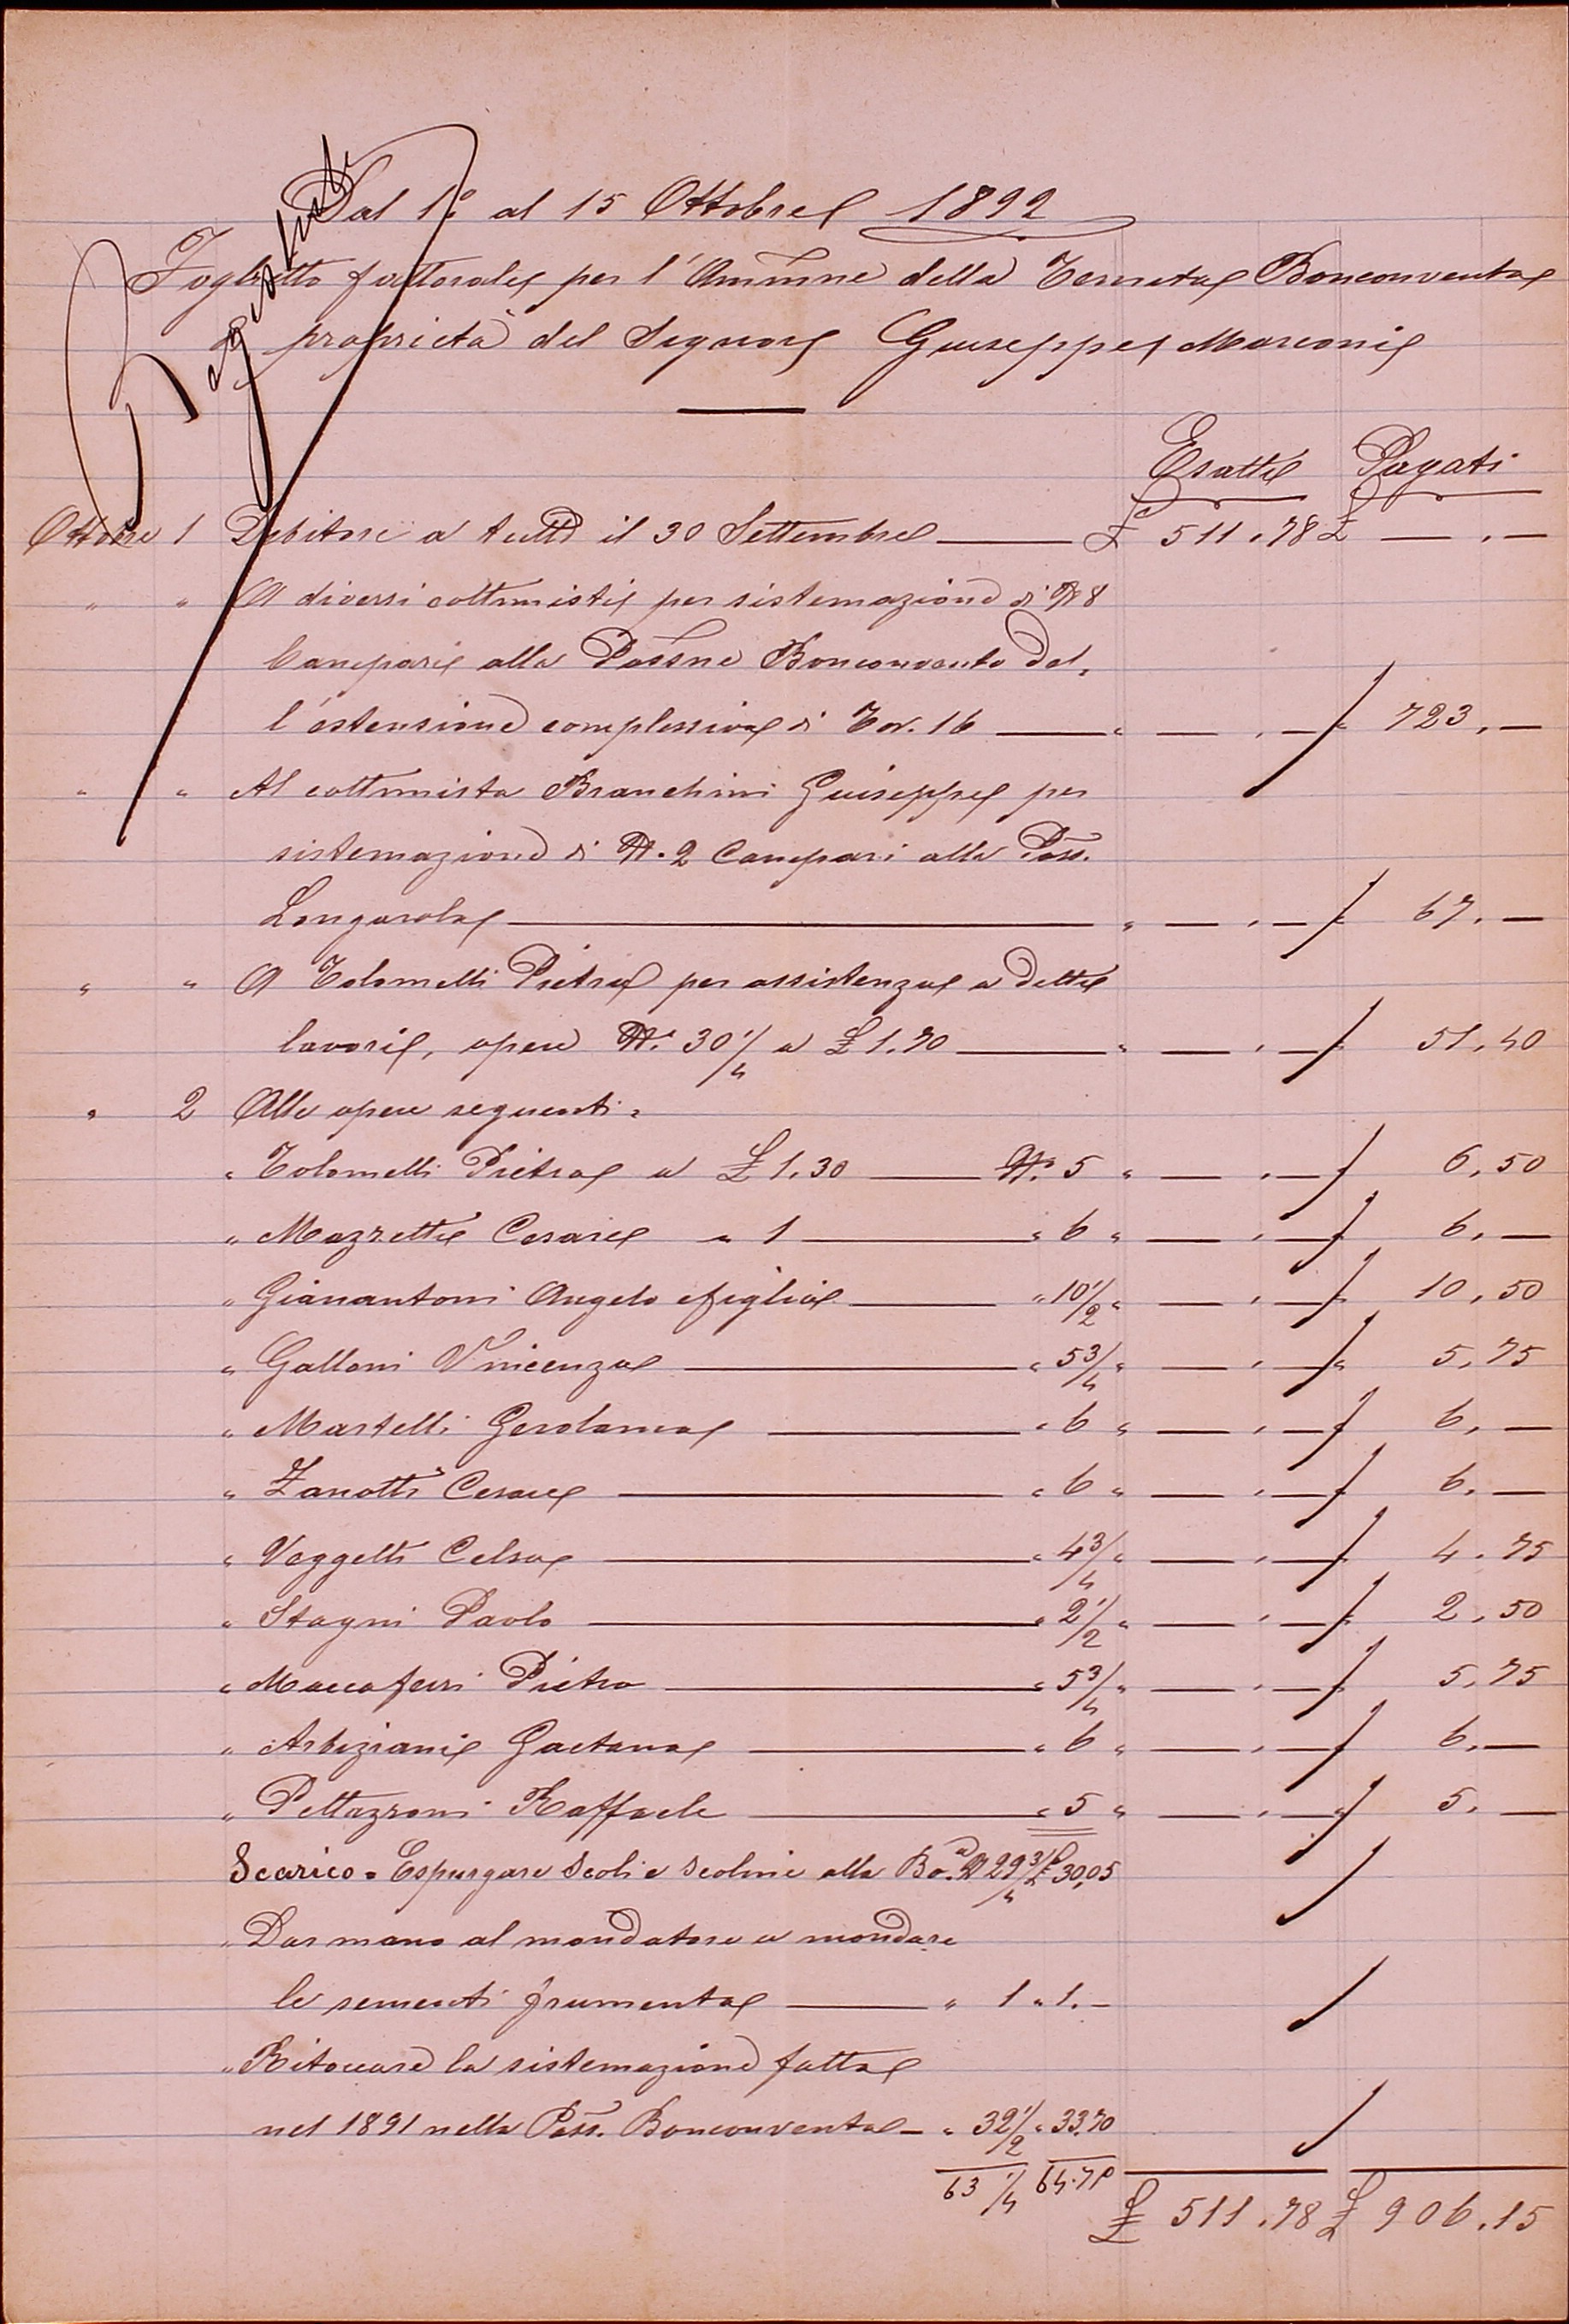 Registrato
Dal 1º al 15 Ottobre 1892
Foglietto fattorale per l'Ammne della Tenuta Bonconvento
di proprietà del Signor Giuseppe Marconi
Esatti Pagati
Ottobre 1 Debitore a tutto il 30 Settembre £ 511.78 £ — . —
" " A diversi cottimisti per sistemazione di N 8
Canepari alla Possne Bonconvento del=
l'estensione complessiva di Tor. 16 " — . — " 723. —
" " Al cottimista Branchini Giuseppe per
sistemazione di N. 2 Canepari alla Poss.
Longarola " — . — " 67. —
" " A Tolomelli Pietro per assistenza a detti
lavori, opere N. 30 1/4 a £ 1.70 " — . — " 51.40
" 2 Alle opere seguenti =
" Tolomelli Pietro a £ 1.30 N. 5 " — . — " 6.50
" Mazzetti Cesare " 1 " 6 " — . — " 6. —
" Gianantoni Angelo e figlio " 10 1/2 " — . — " 10.50
" Galloni Vincenzo " 5 3/4 " — . — " 5.75
" Martelli Gerolamo " 6 " — . — " 6. —
" Zanotti Cesare " 6 " — . — " 6. —
" Veggetti Celso " 4 3/4 " — . — " 4.75
" Stagni Paolo " 2 1/2 " — . — " 2.50
" Maccaferri Pietro " 5 3/4 " — . — " 5.75
" Arbizzani Gaetano " 6 " — . — " 6. —
" Pettazzoni Raffaele " 5 " — . — " 5. —
Scarico = Espurgare scoli e scoline alla Bo.a N 29 3/4 £ 30,05
" Dar mano al mondatore a mondare
le sementi frumento " 1 " 1. —
" Ritoccare la sistemazione fatta
nel 1891 nella Poss. Bonconvento — " 32 1/2 " 33.70
63 1/4 64.75
£ 511.78 £ 906.15